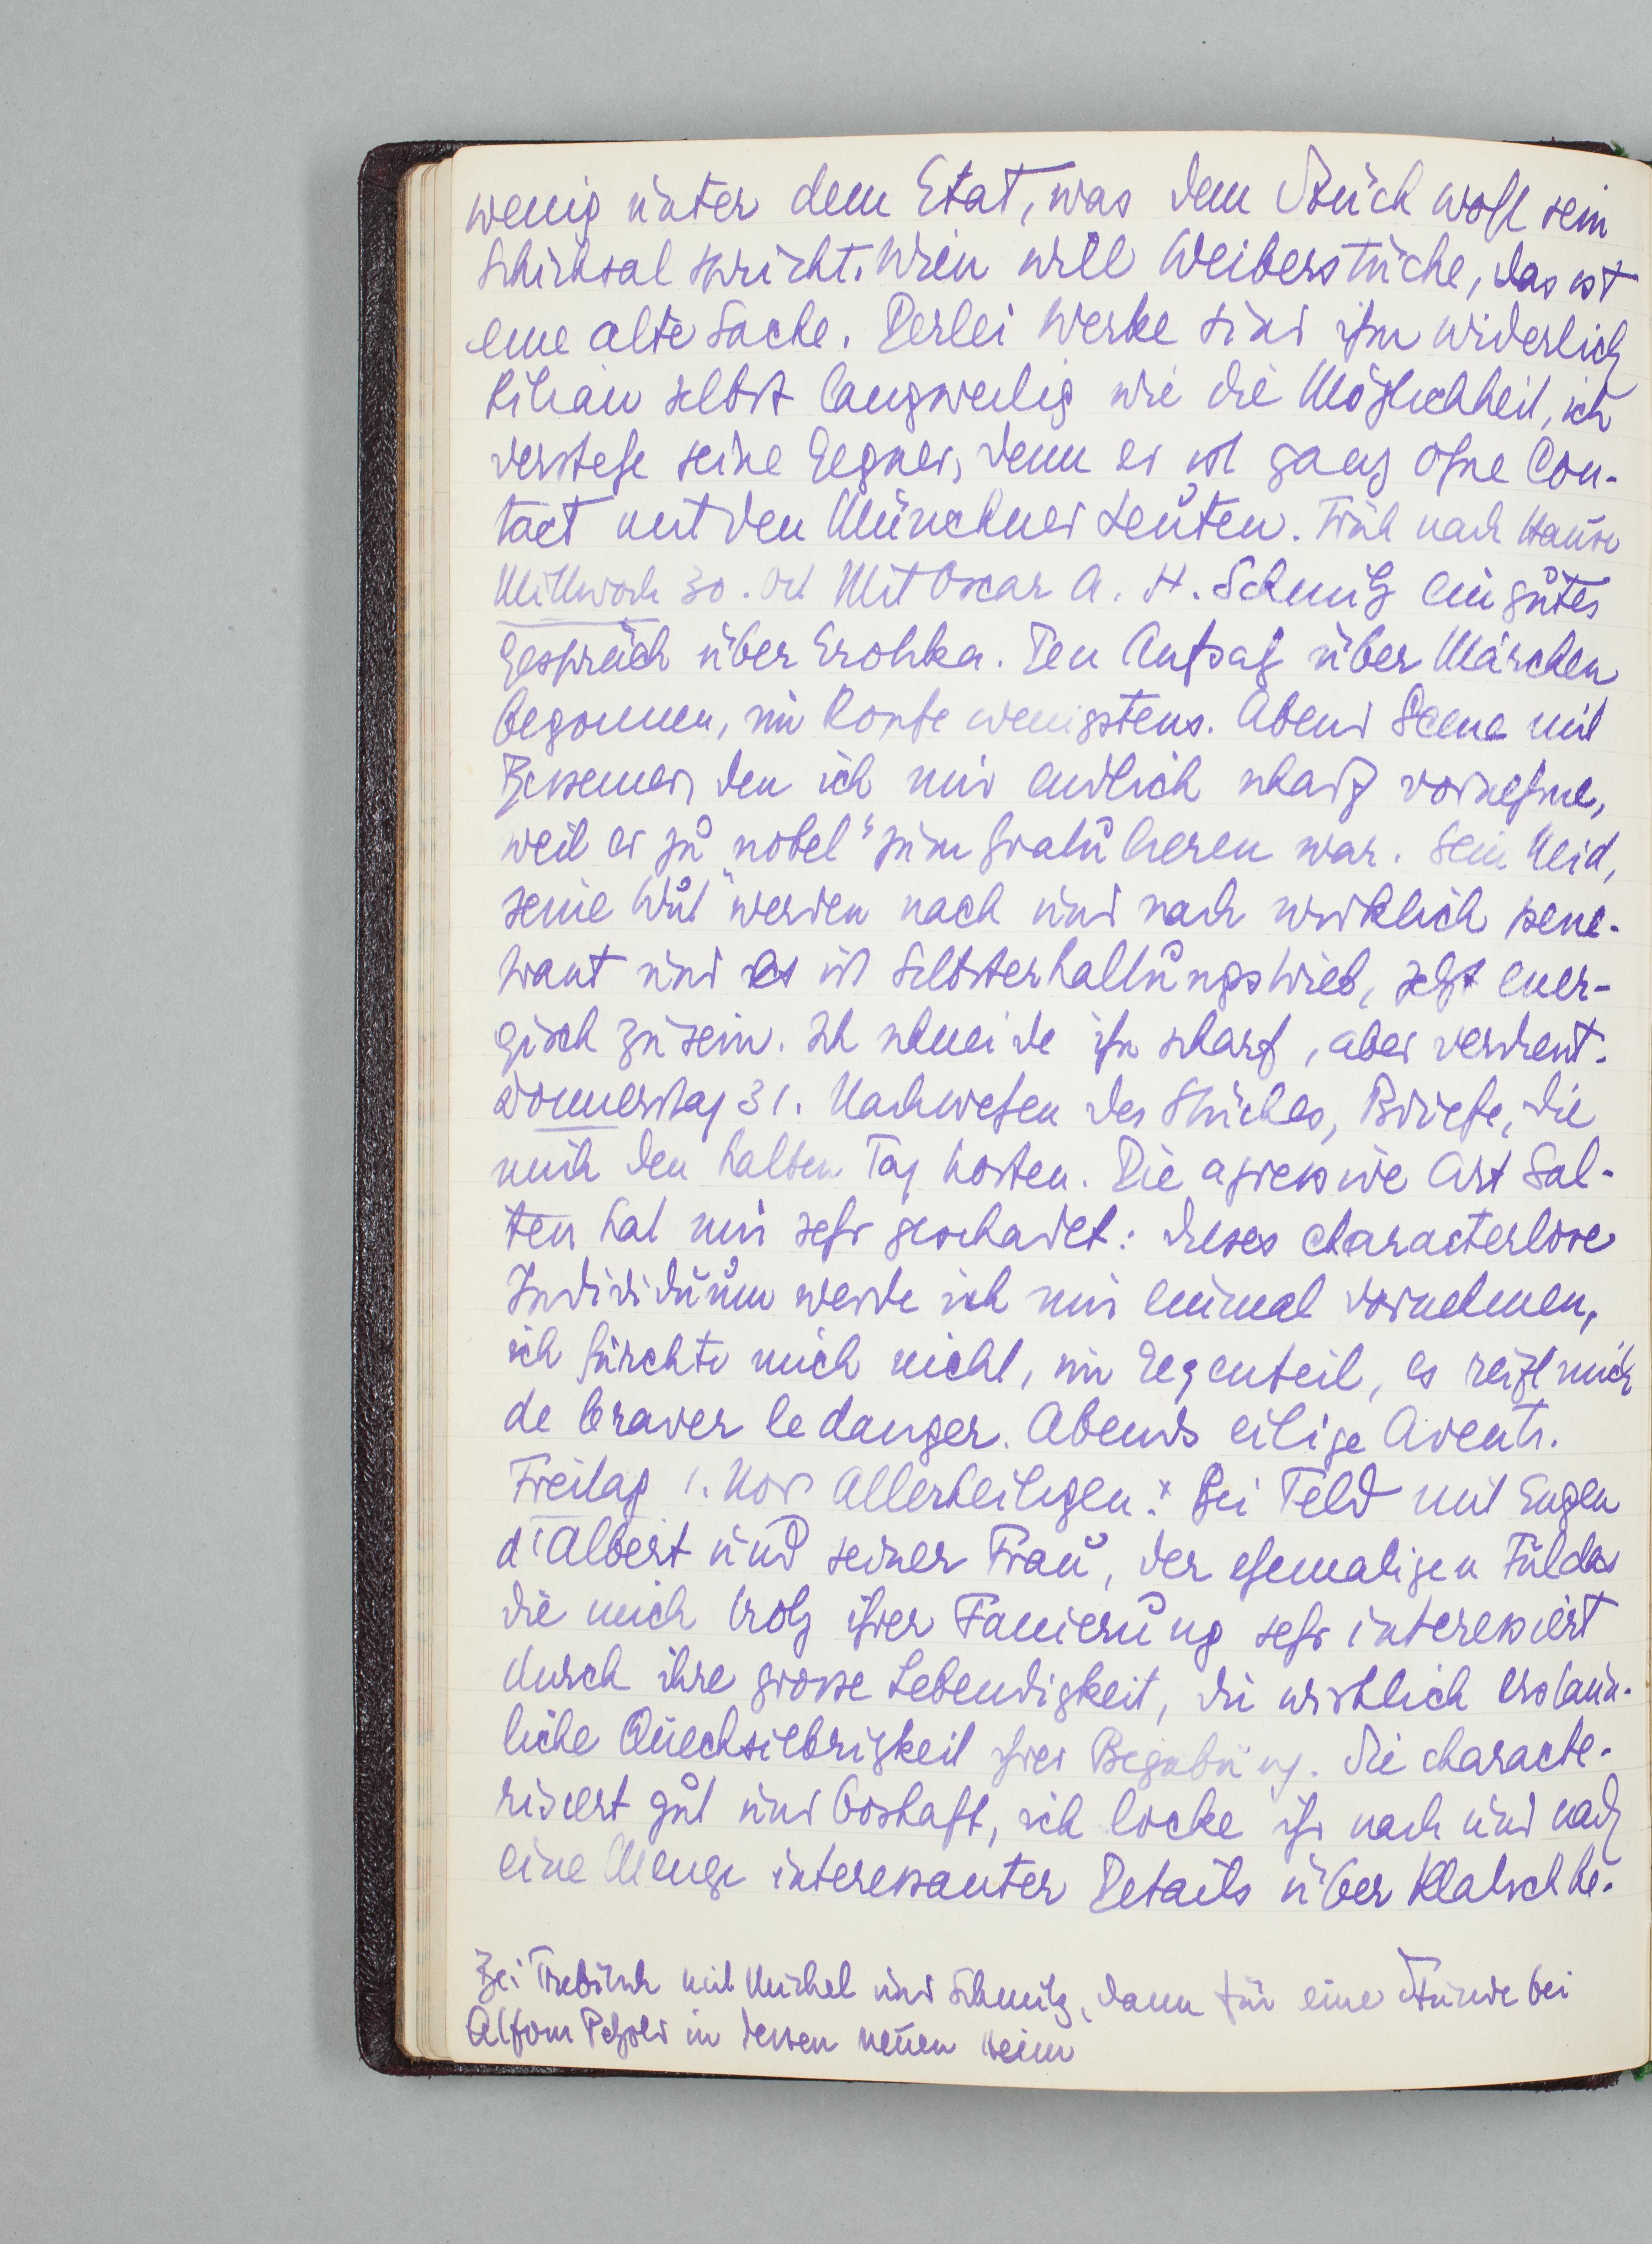 wenig unter dem Etat, was dem Stück wohl sein
Schicksal spricht. Wien will Weiberstücke, das ist
eine alte Sache. Derlei Werke sind ihm widerlich
Kilian selbst langweilig wie die Möglichkeit, ich
verstehe seine Gegner, denn er ist ganz ohne Con-
tact mit den Münchner Leuten. Früh nach Hause
Mittwoch 30. Oct Mit Oscar A. H. Schmitz ein gutes
Gespräch über Erotika. Den Aufsatz über Märchen
begonnen, im Kopfe wenigstens. Abend Scene mit
den ich mir endlich scharf vornehme,
weil er zu "nobel" zum Gratulieren war. Sein Neid,
seine Wut werden nach und nach wirklich pene-
trant und es ist Selbsterhaltungstrieb, jetzt ener-
gisch zu sein. Ich schneide ihn scharf, aber verdient.
Donnerstag 31. Nachwehen des Stückes, Briefe, die
mich den halben Tag kosten. Die agressive Art Sal-
ten hat mir sehr geschadet: dieses characterlose
Individuum werde ich mir einmal vornehmen,
ich fürchte mich nicht, im Gegenteil, es reizt mich
de braver le danger. Abends eilige Avents.
Freitag 1. Nov Allerheiligen.x Bei Feld mit Eugen
d'Albert und seiner Frau, der ehemaligen Fulda
die mich trotz ihrer Fanierung sehr interessiert
durch ihre grosse Lebendigkeit, die wirklich erstaun-
liche Quecksilbrigkeit ihrer Begabung. Sie characte-
risiert gut und boshaft, ich locke ihr nach und nach
eine Menge interessanter Details über Klatsch he-
Bei Trebitsch mit Michel und Schmitz, dann für eine Stunde bei
Alfons Petzold in dessen neuen Heim